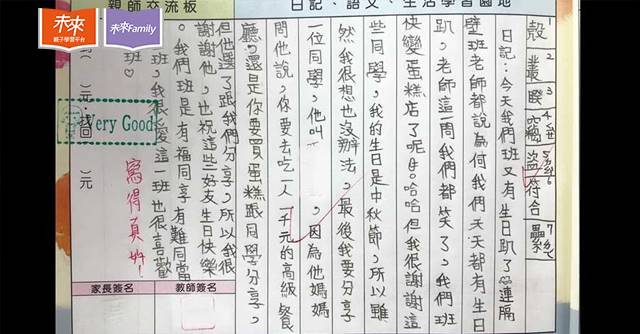 未來
親子學習平台
未來Family
親師交流板
日記、語文、生活學習園地
殼 叢 睽 盜 符合
日記:今天我們班又有生日趴了連隔
壁班老師都說為何我們天天都有生日
趴,老師這一問我們都笑了,我們班
快變蛋糕店了呢哈哈但我很謝謝這
些同學,我的生日是中秋節,所以雖
然我很想也沒辦法,最後我要分享
一位同學,他叫,因為他媽媽
問他說,你要去吃一人一千元的高級餐
廳,還是你要買蛋糕跟同學分享,
但他選了跟我們分享,所以我很
謝謝他,也祝這些好友生日快樂
。我們班是有福同享有難同當
班,我很愛這一班也很喜歡
班♡
Very Good
寫得真好!
元
元
家長簽名
教師簽名